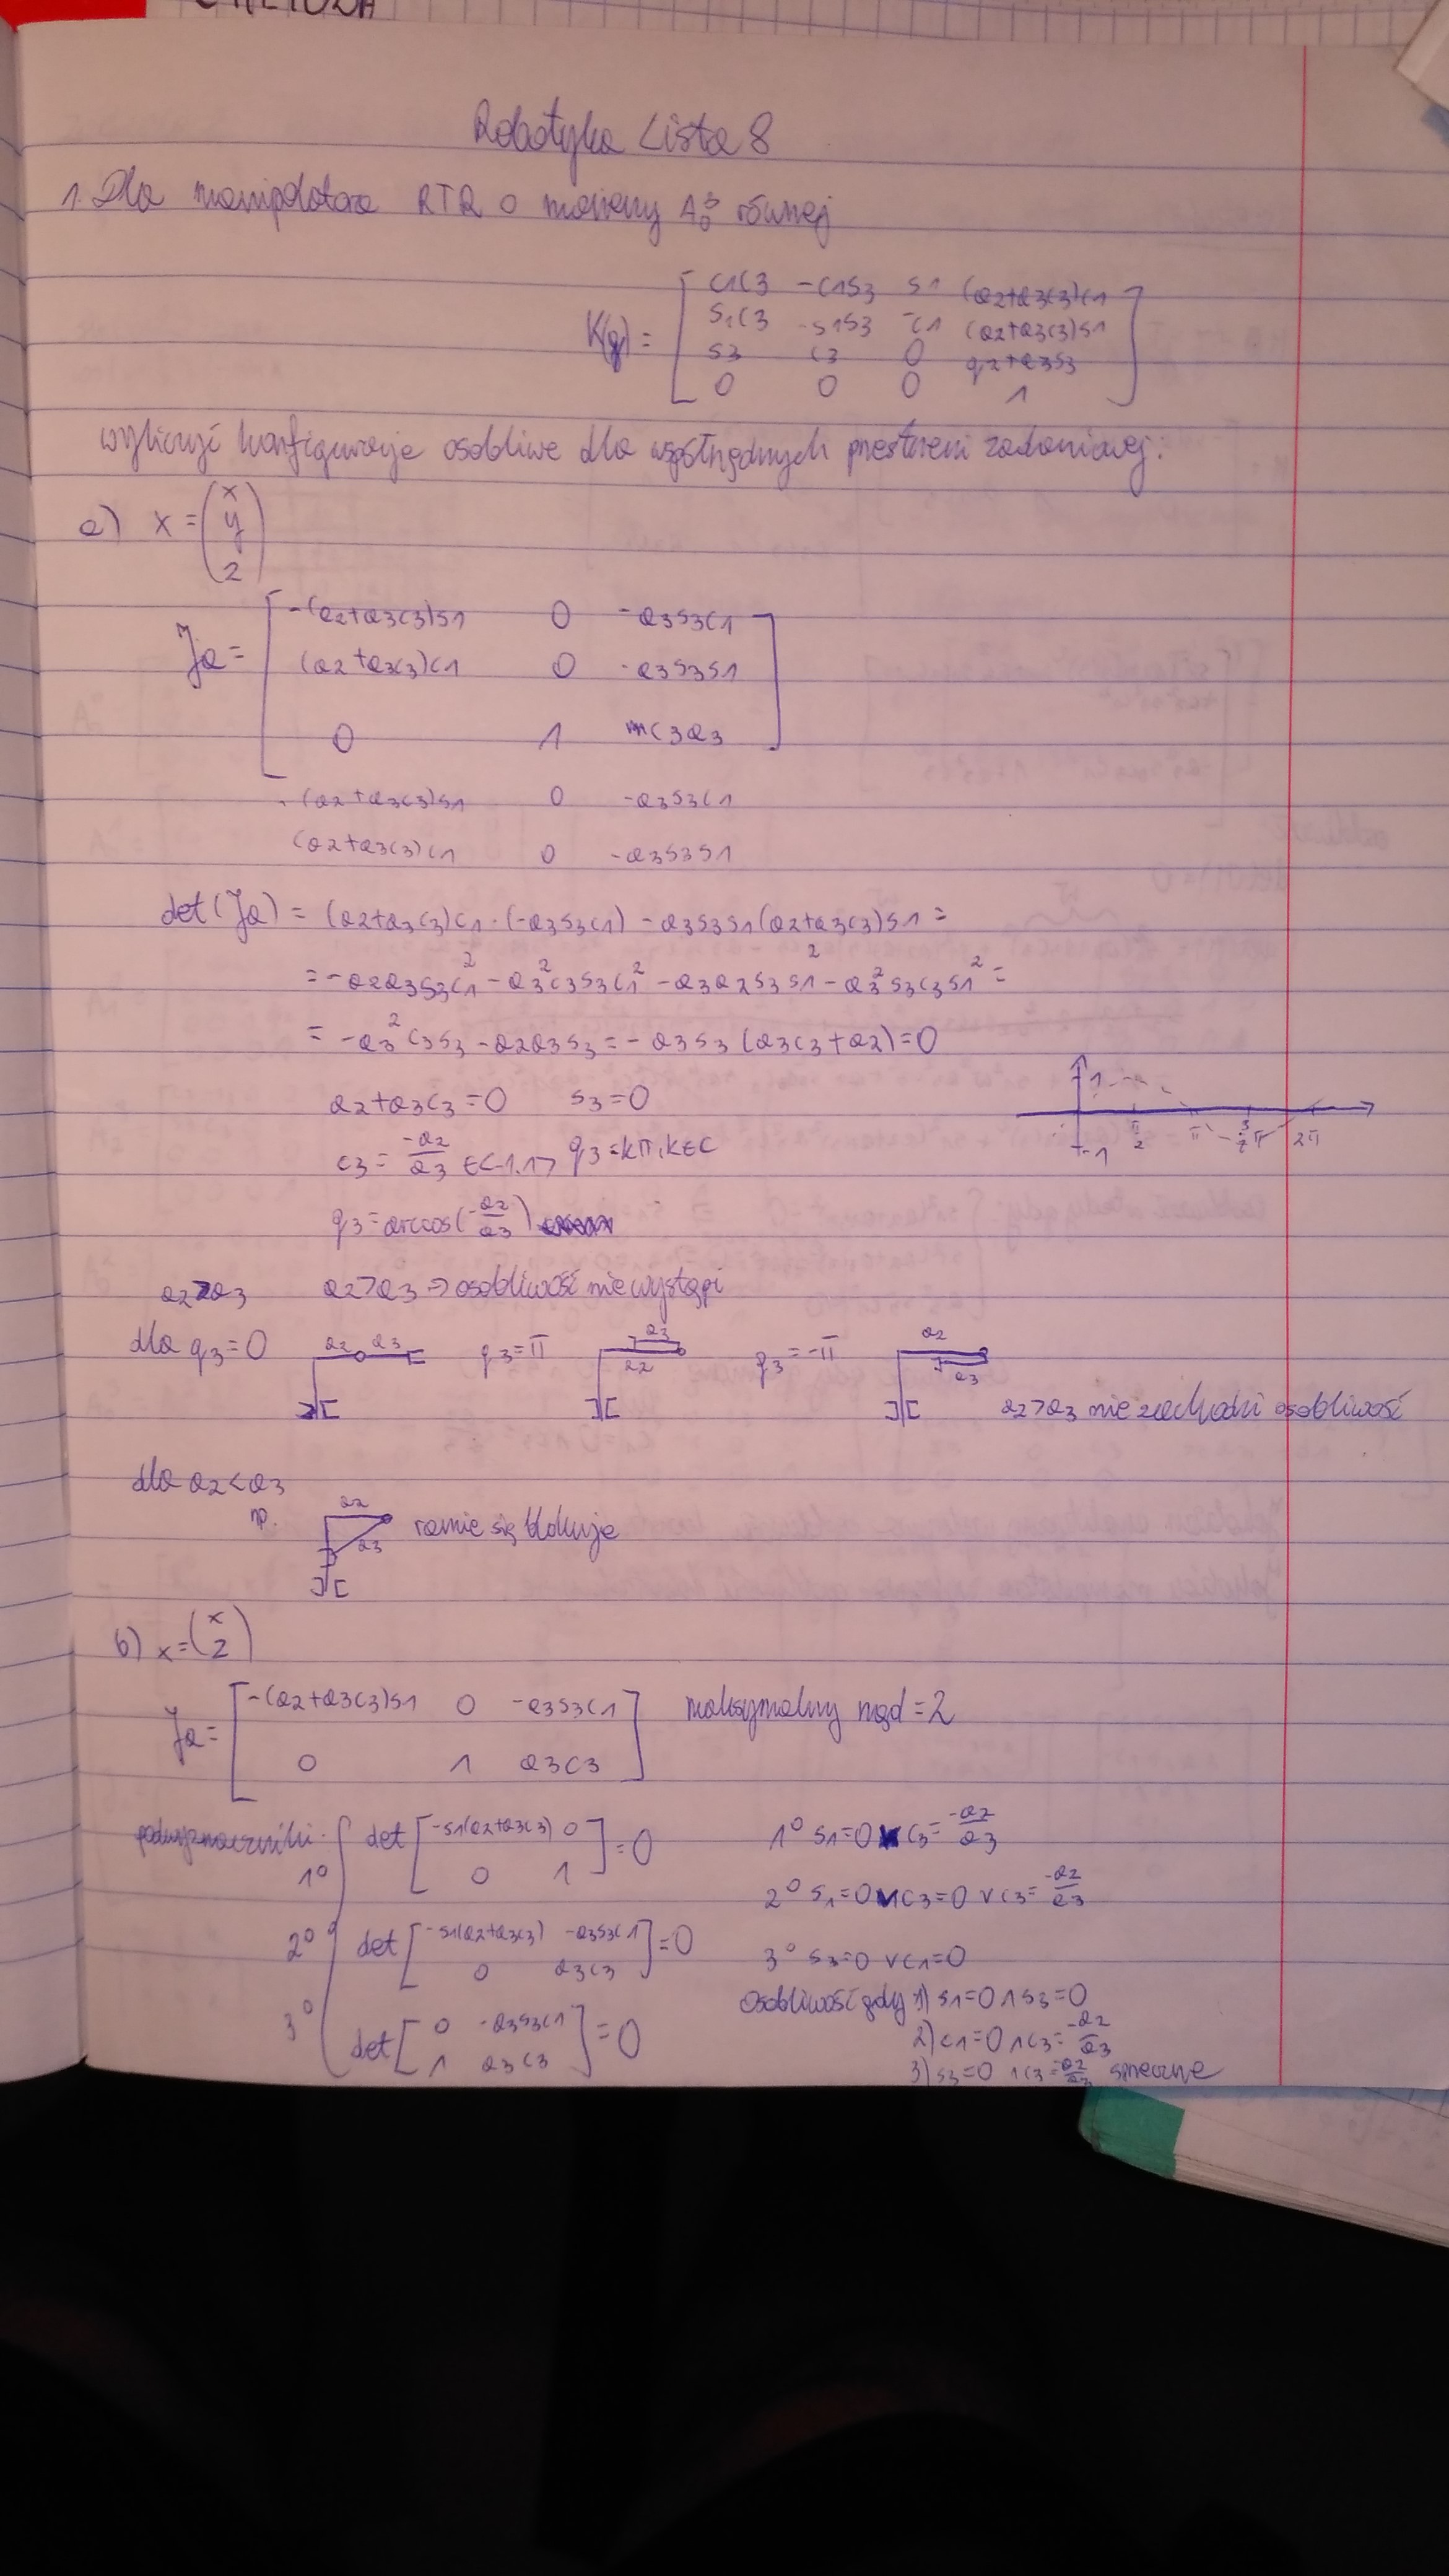 Robotyka Lista 8
1. Dla manipulatora RTR o macierzy A₀³ równej
K(q) = [ c1c3 -c1s3 s1 (a2+a3c3)c1
s1c3 -s1s3 -c1 (a2+a3c3)s1
s3 c3 0 q2+a3s3
0 0 0 1 ]
wyliczyć konfiguracje osobliwe dla współrzędnych przestrzeni zadaniowej:
a) x = (x
y
z)
Ja = [ -(a2+a3c3)s1 0 -a3s3c1
(a2+a3c3)c1 0 -a3s3s1
0 1 c3a3 ]
-(a2+a3c3)s1 0 -a3s3c1
(a2+a3c3)c1 0 -a3s3s1
det(Ja) = (a2+a3c3)c1·(-a3s3c1) - a3s3s1(a2+a3c3)s1 =
= -a2a3s3c1² - a3²c3s3c1² - a3a2s3s1² - a3²s3c3s1² =
= -a3²c3s3 - a2a3s3 = -a3s3(a3c3+a2) = 0
a2+a3c3=0 s3=0
c3 = -a2/a3 ∈<-1,1> q3=kπ, k∈C
q3 = arccos(-a2/a3)
1 π/2 π 3/2π 2π
-1
a2>a3 a2>a3 ⇒ osobliwość nie wystąpi
dla q3=0 a2 a3 q3=π a3 a2 q3=-π a2 a3
a2>a3 nie zachodzi osobliwość
dla a2<a3
np. a2 a3 ramie się blokuje
b) x = (x
z)
Ja = [ -(a2+a3c3)s1 0 -a3s3c1
0 1 a3c3 ] maksymalny rząd = 2
podwyznaczniki.
1° det [ -s1(a2+a3c3) 0
0 1 ] = 0 1° s1=0 v c3 = -a2/a3
2° s1=0 v c3=0 v c3 = -a2/a3
2° det [ -s1(a2+a3c3) -a3s3c1
0 a3c3 ] = 0
3° s3=0 v c1=0
3° det [ 0 -a3s3c1
1 a3c3 ] = 0
Osobliwość gdy 1) s1=0 ∧ s3=0
2) c1=0 ∧ c3 = -a2/a3
3) s3=0 ∧ c3 = -a2/a3 sprzeczne